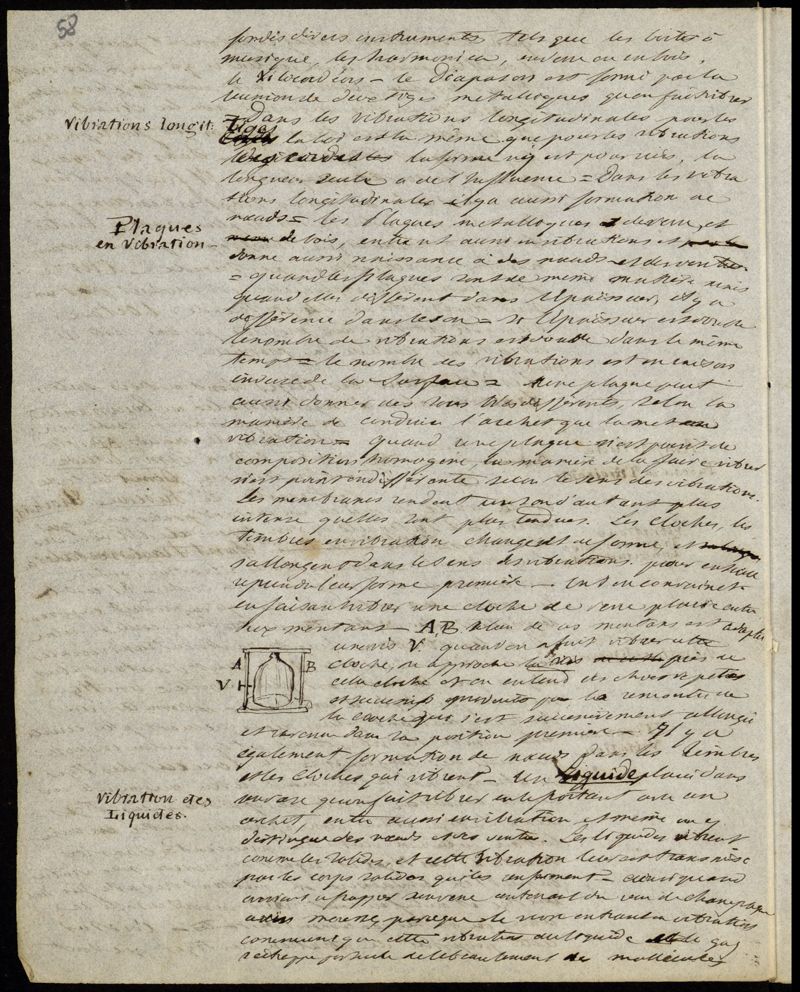 58
fondés divers instruments tels que les boites à
musique, les harmonica, en verre ou en bois,
le diapason est formé par la
réunion de deux tiges métalliques qu'on fait vibrer
Vibrations longit:
= Dans les vibrations longitudinales pour les
Tiges la loi est la même que pour les vibrations
la forme n'y est pour rien, la
longueur seule a de l'influence = Dans les vibra
tions longitudinales il y a aussi formation de
nœuds = les Plaques métalliques de verre, et
Plaques
en Vibration -
de bois, entrent aussi en vibrations et
donne aussi naissance à des nœuds et des ventres
= quand les plaques sont de même matière mais
quand elles diffèrent dans l'épaisseur, il y a
différence dans le son = si l'épaisseur est double
le nombre de vibrations est double dans le même
temps = le nombre des vibrations est en raison
inverse de la surface = une plaque peut
aussi donner des sons très différents, selon la
manière de conduire l'archet que la met en
vibration = quand une plaque n'est point de
composition homogène, la manière de la faire vibrer
n'est point indifférente selon le sens des vibrations.
Les membranes rendent un son d'autant plus
intense qu'elles sont plus tendues. Les cloches, les
timbres en vibration, changent de forme, et
s'allongent dans le sens des vibrations pour ensuite
reprendre leur forme première - on s'en convainc
en faisant vibrer une cloche de verre placée entre
deux montans - A, B à l'un de ces montans est adaptée
une vis V quand on a fait vibrer la
A B
V
cloche, on approche la vis près de
cela cloche et on entend des chocs répétés
et successifs produits par la rencontre de
la cloche qui s'est successivement allongée
et revenue dans sa position première - Il y a
également formation de nœuds dans les timbres
et les cloches qui vibrent - Un liquide placé dans
Vibration des
Liquides.
un vase qu'on fait vibrer en le frottant avec un
archet, entre aussi en vibration et même on y
distingue des nœuds et des ventres. Les liquides vibrent
comme les solides, et cette vibration leur est transmise
par les corps solides qui les renferment - ainsi quand
on vient à frapper un verre contenant du vin de champagne
mousse, parceque le verre entrant en vibration
communique cette vibration au liquide et le gaz
s'échappe par suite de l'ébranlement des molécules